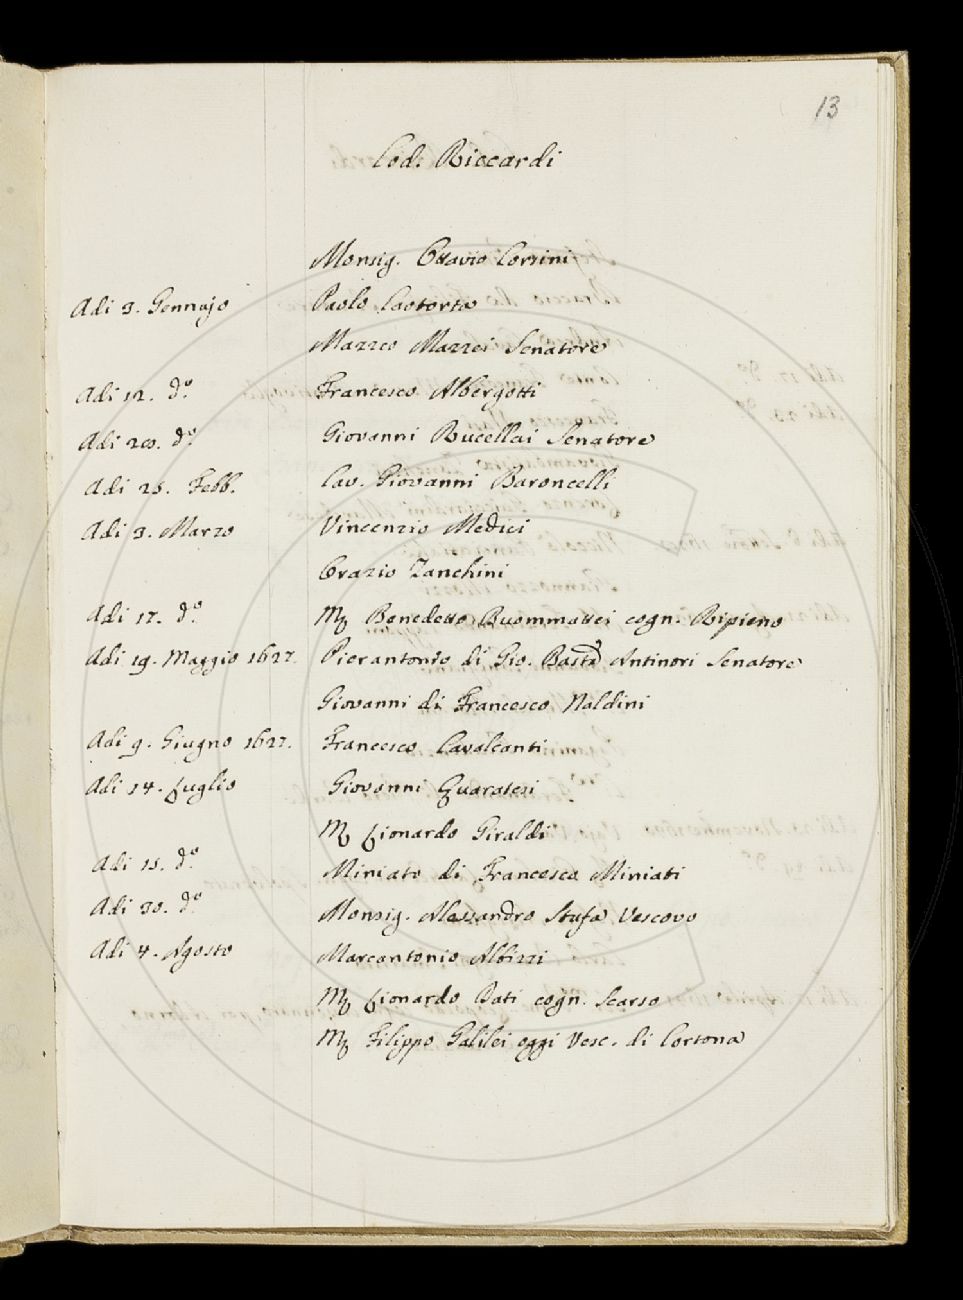 13
Cod. Riccardi
Monsig. Ottavio Corsini
Adi 3. Gennajo Paolo Caotorta
Mazzeo Mazzei Senatore
Adi 12. d.º Francesco Albergotti
Adi 20. d.º Giovanni Rucellai Senatore
Adi 28. Febb. Cav. Giovanni Baroncelli
Adi 3. Marzo Vincenzio Medici
Orazio Zanchini
Adi 17. d.º Mʃ Benedetto Buommattei cogn. Ripieno
Adi 19. Maggio 1627. Pierantonio di Gio. Basta Antinori Senatore
Giovanni di Francesco Naldini
Adi 9. Giugno 1627. Francesco Cavalcanti
Adi 14. Luglio Giovanni Quaratesi
Mʃ Lionardo Giraldi
Adi 15. d.º Miniato di Francesco Miniati
Adi 30. d.º Monsig. Alessandro Stufa Vescovo
Adi 4. Agosto Marcantonio Albizzi
Mʃ Lionardo Dati cogn. Scarso
Mʃ Filippo Galilei oggi Vesc. di Cortona